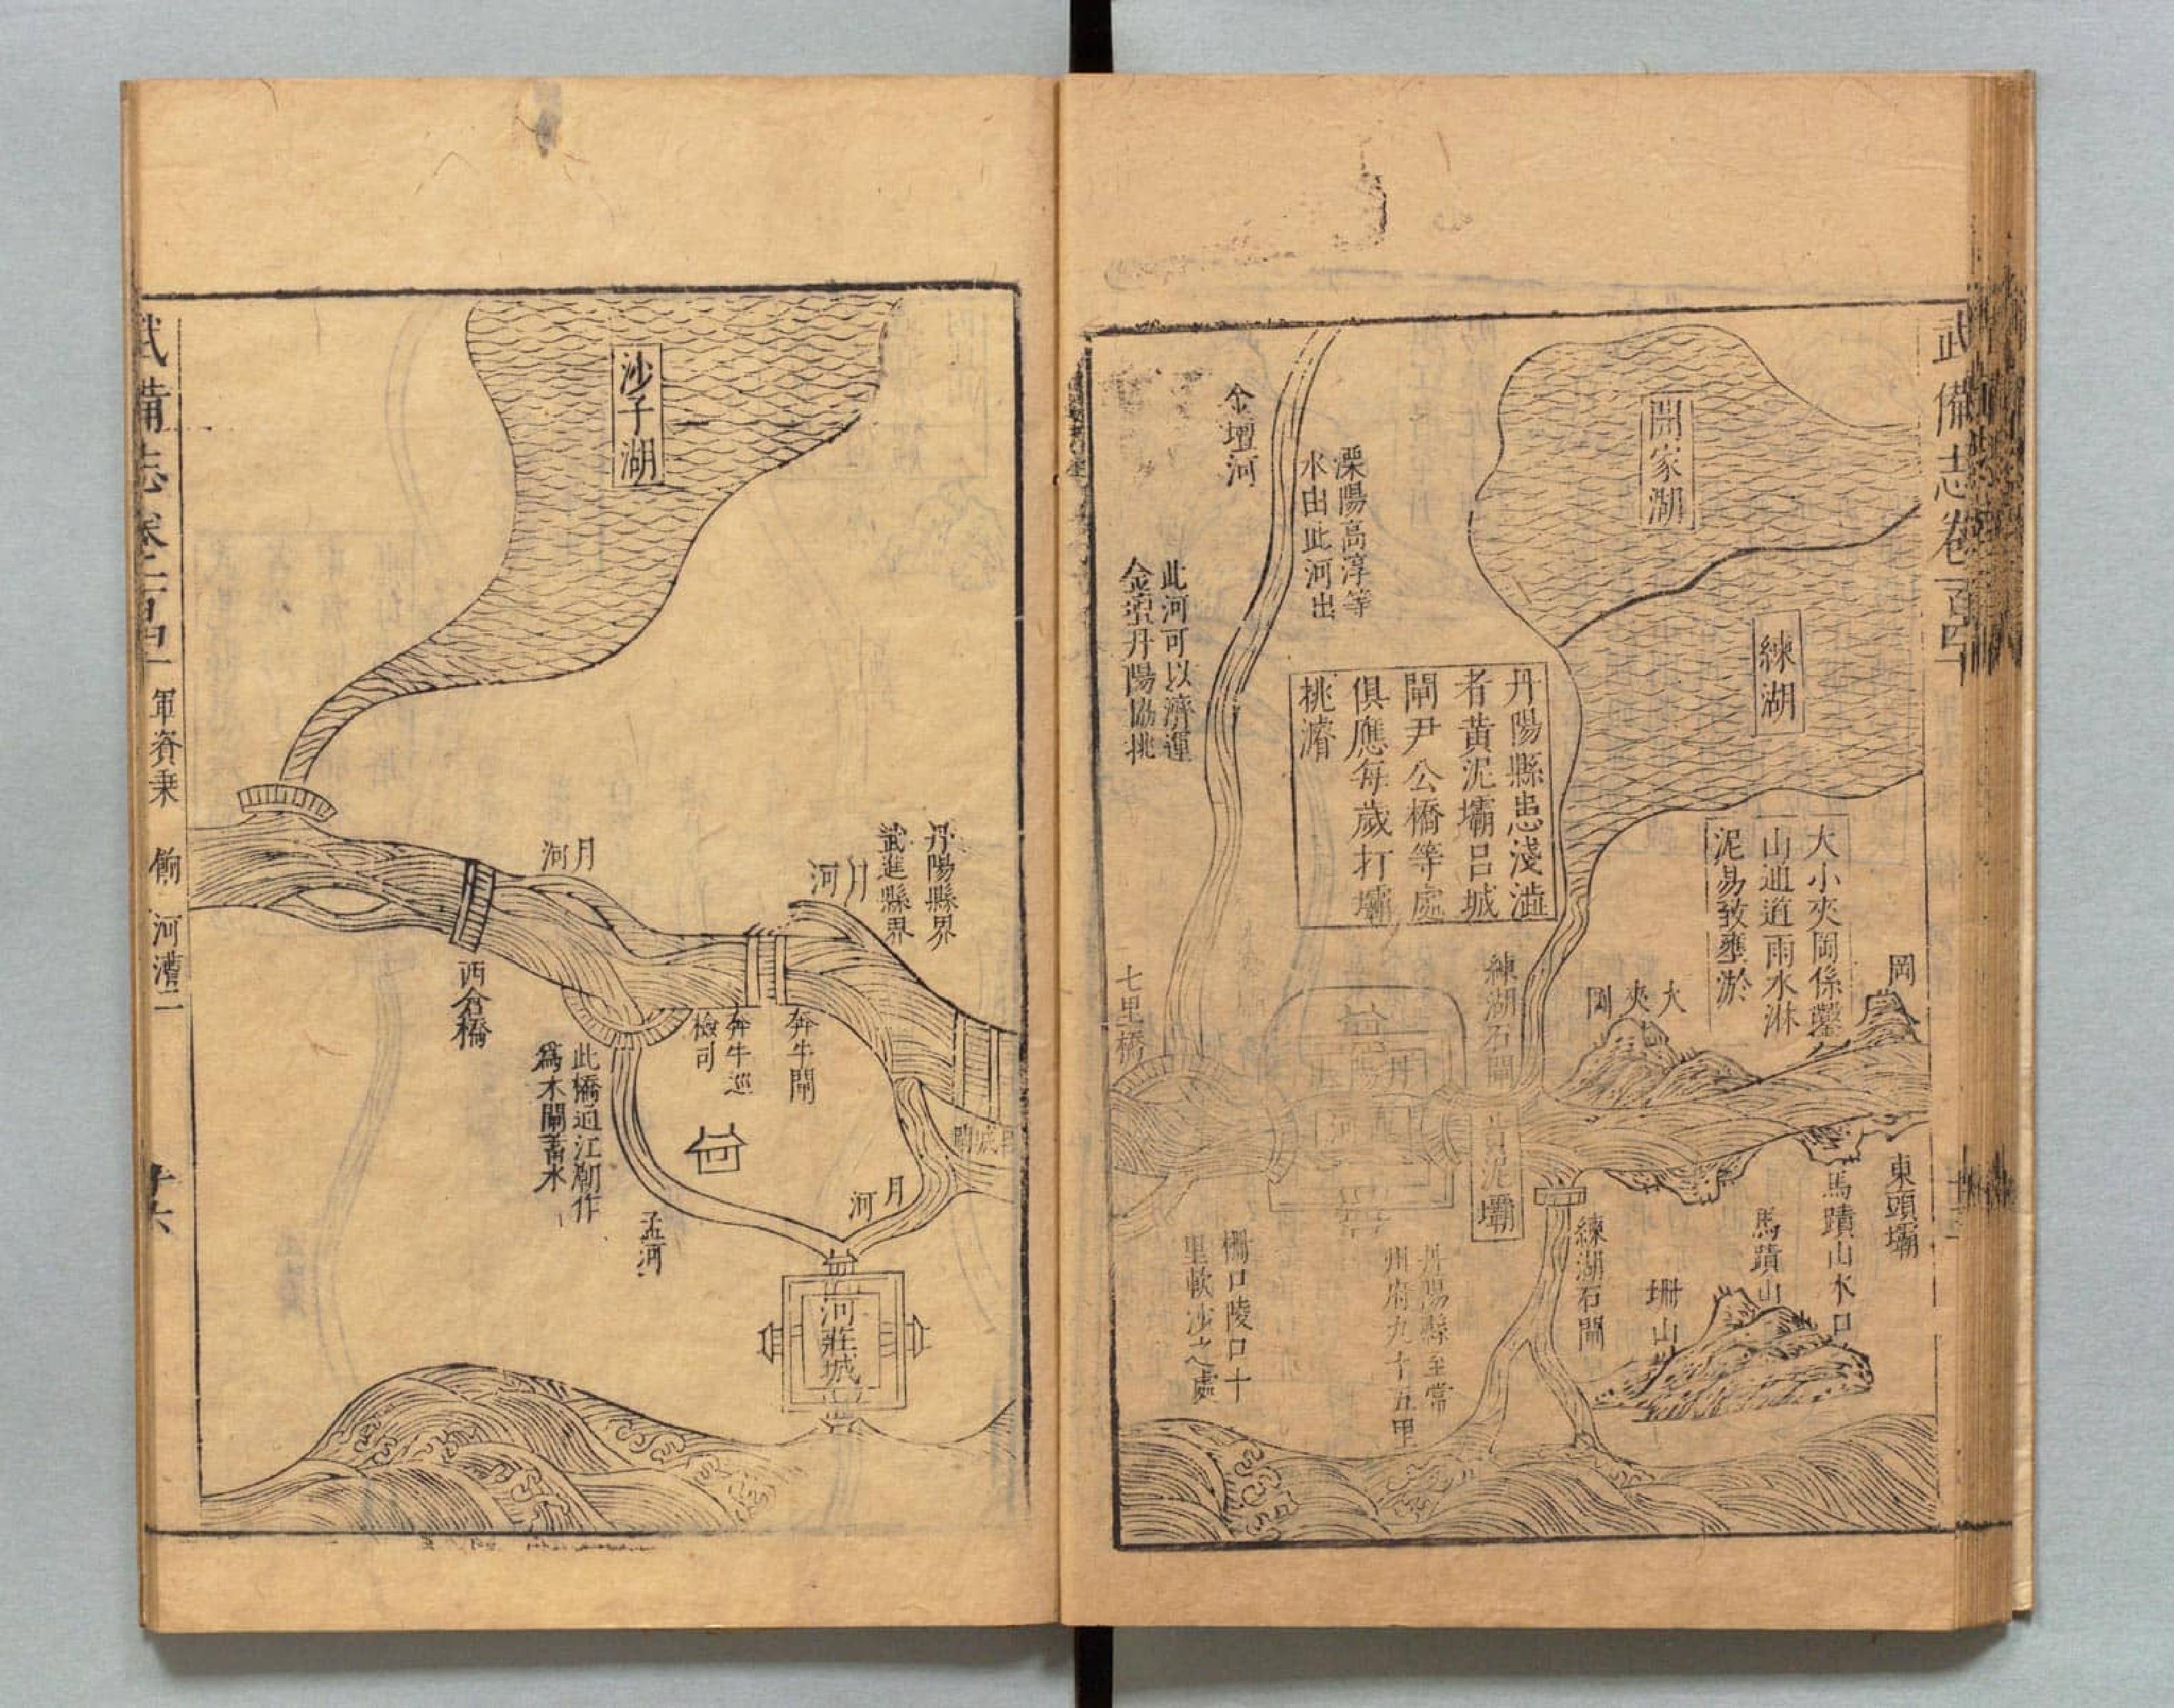 武備志卷一百四十一
開家湖
練湖
岡
大小夾岡係鑿
山通道雨水淋
泥易致壅淤
大夾岡
東頭壩
馬蹟山水口
馬蹟山
珊山
練湖石閘
練湖石閘
黃泥壩
丹陽縣患淺澁
者黃泥壩呂城
閘尹公橋等處
俱應每歲打壩
挑濬
丹陽至常
州府九十五里
溧陽高淳等
水由此河出
金壇河
此河可以濟運
金壇丹陽協挑
七里橋
柵口陵口十
里軟沙之處
沙子湖
丹陽縣界
武進縣界
月河
月河
呂城閘
奔牛閘
奔牛巡
檢司
月河
河莊城
孟河
此橋通江潮作
爲木閘蓄水
西倉橋
武備志卷一百四十一
軍資乘
餉
河漕二
十六